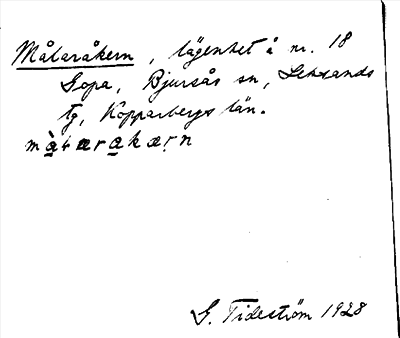 Målaråkern, lägenhet å nr. 18
Sopa, Bjursås sn, Leksands
tg, Kopparbergs län.
G. Tideström 1928